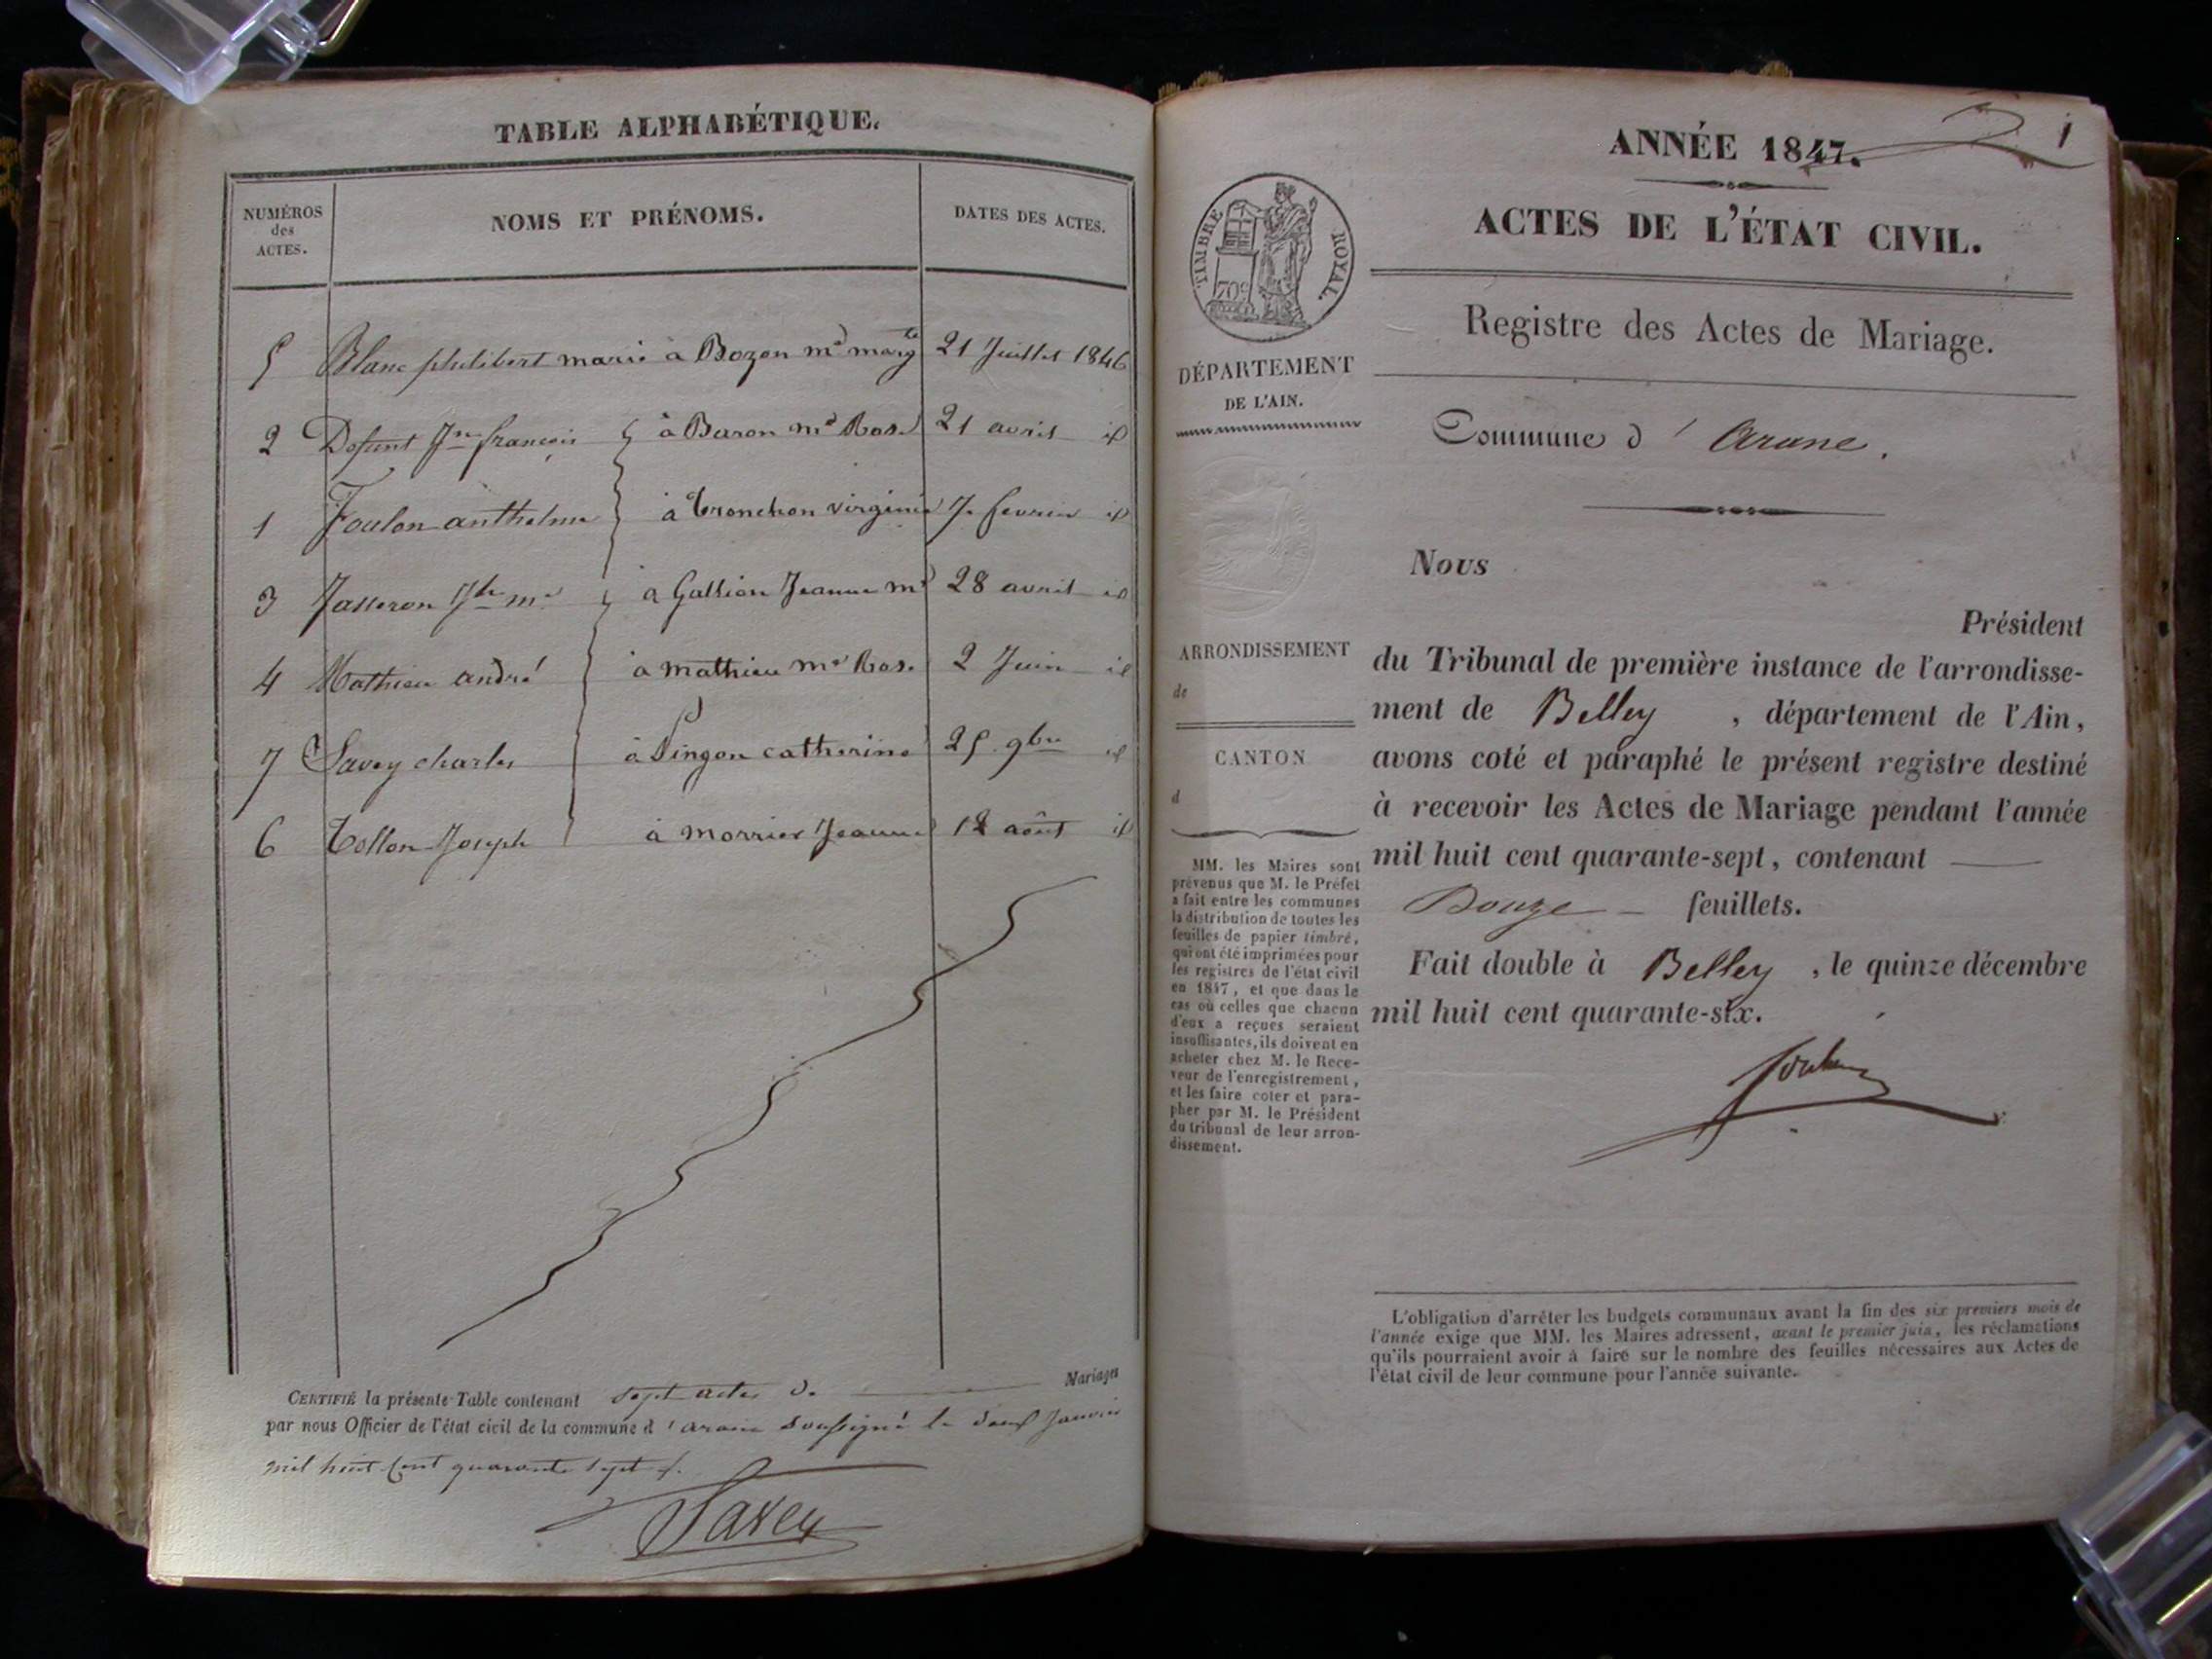 TABLE ALPHABÉTIQUE.
NUMÉROS des ACTES.
NOMS ET PRÉNOMS.
DATES DES ACTES.
5 Blanc philibert marie à Bozon mie margte 21 Juillet 1846
2 Defunt Jn françois à Buron mie Rose 21 avril id
1 Foulon anthelme à tronchon virginie 7 fevrier id
3 Jasseron Jh mie à Gallion Jeanne mie 28 avril id
4 Mathieu andré à mathieu mie Rose 2 Juin id
7 Savey charles à Pingon catherine 25 9bre id
6 Tollon Joseph à morrier Jeanne 12 août id
CERTIFIÉ la présente Table contenant sept actes de Mariages
par nous Officier de l'état civil de la commune d'arane soussigné le deux Janvier
mil huit cent quarante sept
Savey
1
ANNÉE 1847.
ACTES DE L'ÉTAT CIVIL.
Registre des Actes de Mariage.
TIMBRE ROYAL.
70c
DÉPARTEMENT
DE L'AIN.
ARRONDISSEMENT
de
CANTON
d
MM. les Maires sont
prévenus que M. le Préfet
a fait entre les communes
la distribution de toutes les
feuilles de papier timbré,
qui ont été imprimées pour
les registres de l'état civil
en 1847, et que dans le
cas où celles que chacun
d'eux a reçues seraient
insuffisantes, ils doivent en
acheter chez M. le Rece-
veur de l'enregistrement,
et les faire coter et para-
pher par M. le Président
du tribunal de leur arron-
dissement.
Commune d'Arane.
Nous
Président
du Tribunal de première instance de l'arrondisse-
ment de Belley, département de l'Ain,
avons coté et paraphé le présent registre destiné
à recevoir les Actes de Mariage pendant l'année
mil huit cent quarante-sept, contenant
Douze feuillets.
Fait double à Belley, le quinze décembre
mil huit cent quarante-six.
L'obligation d'arrêter les budgets communaux avant la fin des six premiers mois de
l'année exige que MM. les Maires adressent, avant le premier juin, les réclamations
qu'ils pourraient avoir à faire sur le nombre des feuilles nécessaires aux Actes de
l'état civil de leur commune pour l'année suivante.